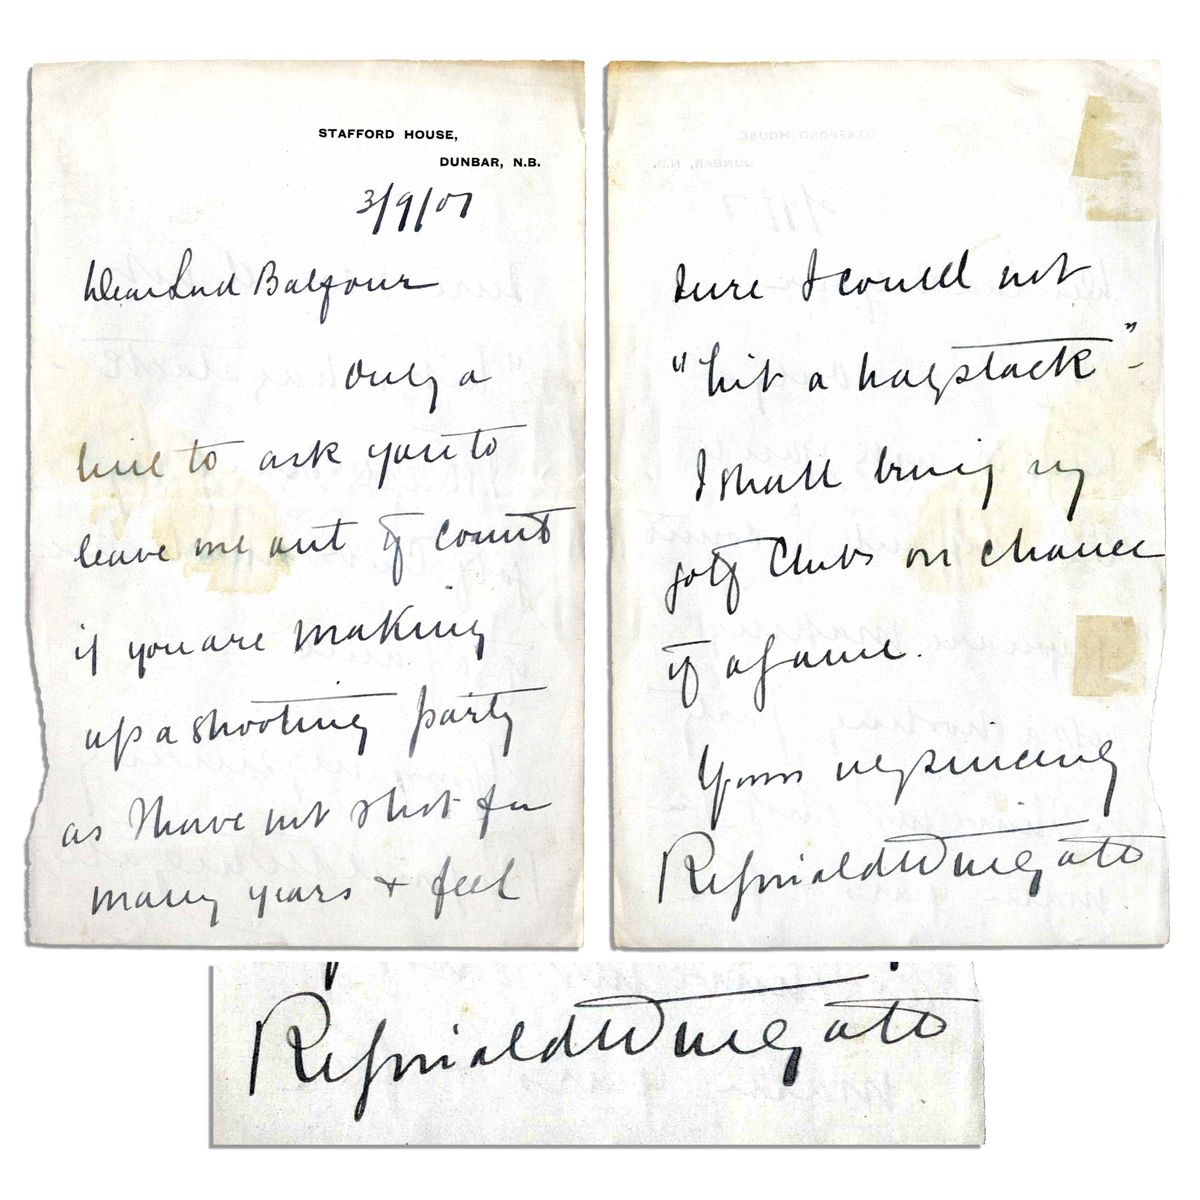 STAFFORD HOUSE,
DUNBAR, N.B.
3/9/07
Dear Lord Balfour
only a
line to ask you to
leave me out of count
if you are making
up a shooting party
as I have not shot for
many years & feel
sure I could not
"hit a haystack" -
I shall bring my
golf clubs on chance
of a game.
Yours very sincerely
Reginald Wingate
Reginald Wingate